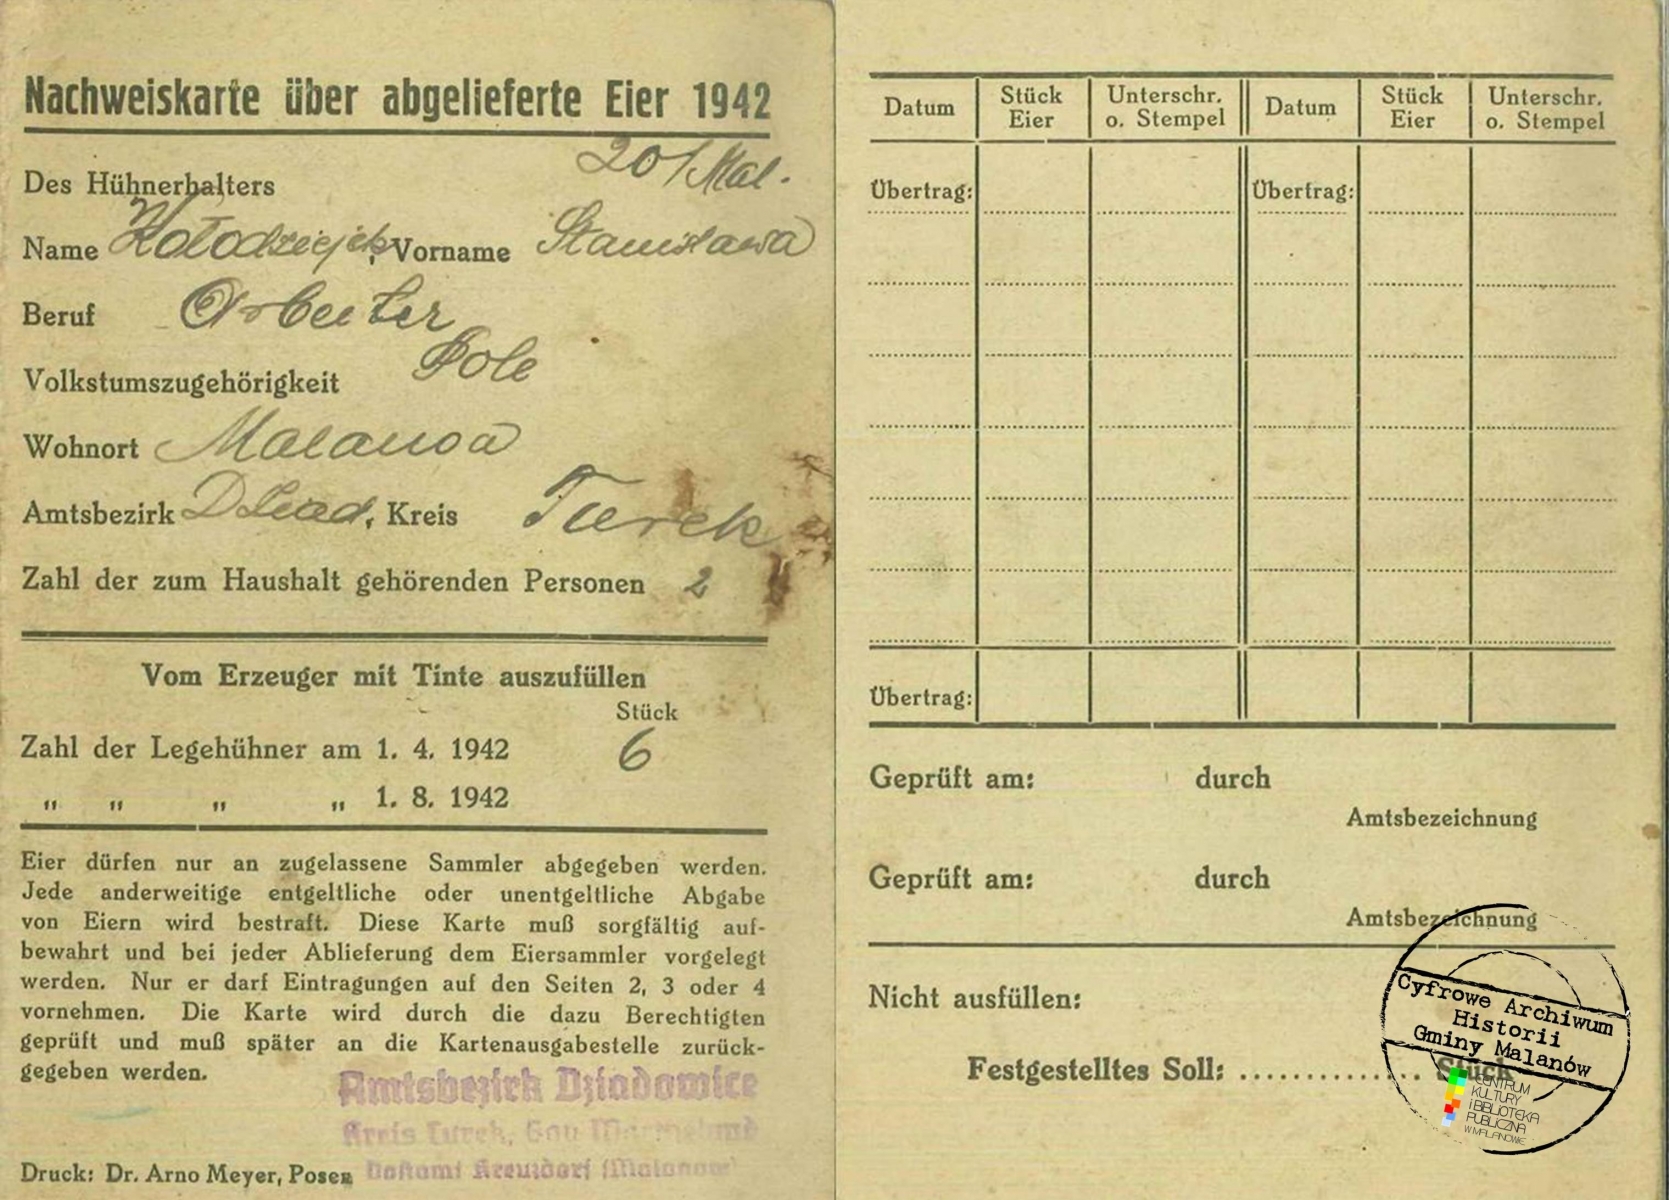 Nachweiskarte über abgelieferte Eier 1942
20/Mal.
Des Hühnerhalters
Name Kołodziejek, Vorname Stanisława
Beruf Arbeiter
Volkstumszugehörigkeit Pole
Wohnort Malanow
Amtsbezirk Dziad, Kreis Turek
Zahl der zum Haushalt gehörenden Personen 2
Vom Erzeuger mit Tinte auszufüllen
Stück
Zahl der Legehühner am 1. 4. 1942 6
„ „ „ „ 1. 8. 1942
Eier dürfen nur an zugelassene Sammler abgegeben werden.
Jede anderweitige entgeltliche oder unentgeltliche Abgabe
von Eiern wird bestraft. Diese Karte muß sorgfältig auf-
bewahrt und bei jeder Ablieferung dem Eiersammler vorgelegt
werden. Nur er darf Eintragungen auf den Seiten 2, 3 oder 4
vornehmen. Die Karte wird durch die dazu Berechtigten
geprüft und muß später an die Kartenausgabestelle zurück-
gegeben werden.
Amtsbezirk Dziadowice
Kreis Turek, Gau Wartheland
Postamt Kreuzdorf (Malanow)
Druck: Dr. Arno Meyer, Posen
Datum Stück Eier Unterschr. o. Stempel Datum Stück Eier Unterschr. o. Stempel
Übertrag: Übertrag:
Übertrag:
Geprüft am: durch
Amtsbezeichnung
Geprüft am: durch
Amtsbezeichnung
Nicht ausfüllen:
Festgestelltes Soll: ............... Stück
Cyfrowe Archiwum
Historii
Gminy Malanów
CENTRUM
KULTURY
i BIBLIOTEKA
PUBLICZNA
W MALANOWIE